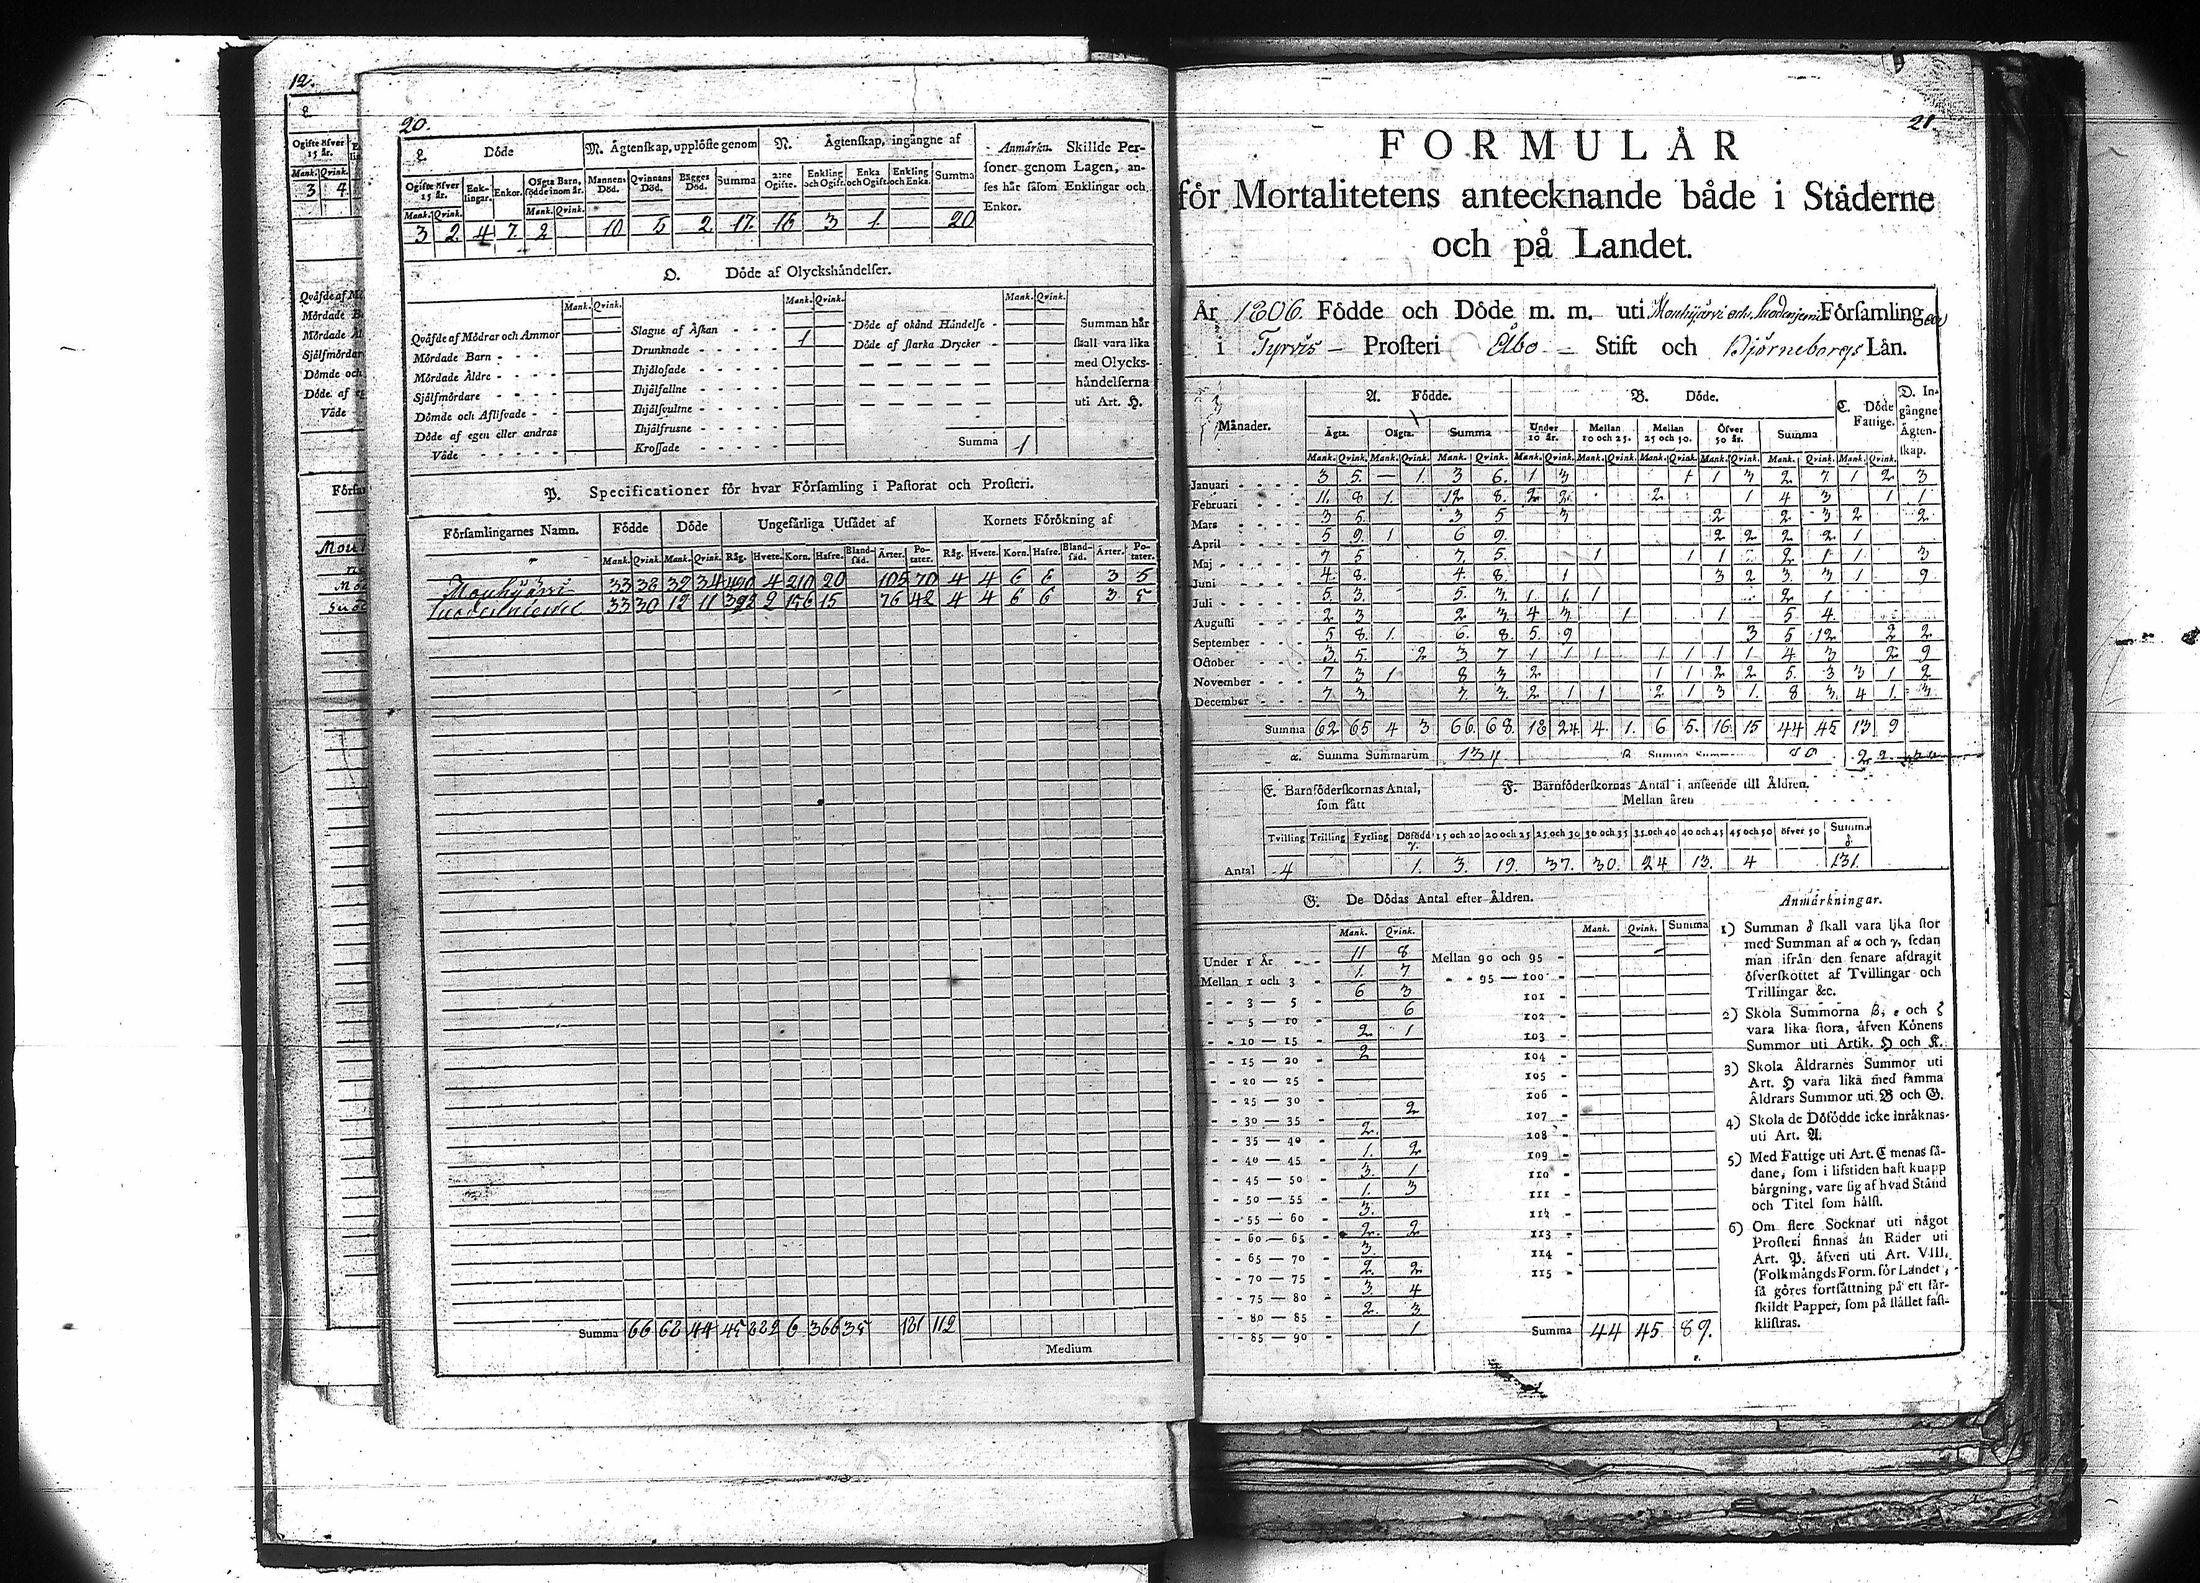 12.
Ogifte öfver
15 år.
Mank. Qvink.
3 4
20.
Döde
M. Ägtenskap, upplöste genom
N. Ägtenskap, ingångne af
Anmärkn. Skillde Per-
soner genom Lagen, an-
ses här såsom Enklingar och
Enkor.
Ogifte öfver 15 år. Enk-lingar. Enkor. Oägta Barn, födde inom år. Mannens Död. Qvinnans Död. Bägges Död. Summa 2:ne Ogifte. Enkling och Ogift. Enka och Ogift. Enkling och Enka. Summa
Mank. Qvink. Mank. Qvink.
3 2 4 7 2 10 5 2 17. 16 3 1. 20
O. Döde af Olyckshändelser.
Mank. Qvink. Mank. Qvink. Mank. Qvink.
Qväfde af Mödrar och Ammor
Mördade Barn - - - -
Mördade Äldre - - - -
Sjelfmördare - - - -
Dömde och Aflifvade - -
Döde af egen eller andras
Våde - - - - -
Slagne af Åskan - - -
Drunknade - - - - - 1
Ihjälosade - - - - -
Ihjälfallne - - - - -
Ihjälsvultne - - - - -
Ihjälfrusne - - - - -
Krossade - - - - -
Döde af okänd Händelse -
Döde af starka Drycker -
Summa 1
Summan här
skall vara lika
med Olycks-
händelserna
uti Art. H.
P. Specificationer för hvar Församling i Pastorat och Prosteri.
Församlingarnes Namn. Födde Döde Ungefärliga Utsädet af Kornets Förökning af
Mank. Qvink. Mank. Qvink. Råg. Hvete. Korn. Hafre. Bland-säd. Ärter. Po-tater. Råg. Hvete. Korn. Hafre. Bland-säd. Ärter. Po-tater.
Mouhijärvi 33 38 32 34 490 4 210 20 105 70 4 4 6 6 3 5
Suodenniemi 33 30 12 11 392 2 156 15 76 42 4 4 6 6 3 5
Summa 66 68 44 45 882 6 366 35 181 112
Medium
21.
FORMULÄR
för Mortalitetens antecknande både i Städerne
och på Landet.
År 1806. Födde och Döde m. m. uti Mouhijärvi och Suodenjemi Församlingar
i Tyrvis - Prosteri Åbo - Stift och Björneborgs Län.
Månader. A. Födde. B. Döde. C. Döde Fattige. D. In-gångne Ägten-skap.
Ägta. Oägta. Summa Under 10 år. Mellan 10 och 25. Mellan 25 och 50. Öfver 50 år. Summa
Mank. Qvink. Mank. Qvink. Mank. Qvink. Mank. Qvink. Mank. Qvink. Mank. Qvink. Mank. Qvink. Mank. Qvink. Mank. Qvink.
Januari - - - - 3 5. — 1. 3 6. 1 3 1 1 3 2. 7. 1 2. 3
Februari - - - 11. 8 1. 12 8. 2 2. 2. 1 4 3 1 1
Mars - - - 3 5. 3 5 3 2 2. 3 2 2
April - - - 5 9. 1 6 9. 2 2 2 2 1
Maj - - - - 7 5 7. 5. 1 1 1 2 1 1 3
Juni - - - - 4. 8. 4. 8. 1 3 2 3. 3 1 9
Juli - - - - 5. 3. 5. 3. 1. 1. 1 2 1
Augusti - - - 2 3 2 3 4 3 1 1 5 4
September - - - 5 8. 1. 6. 8. 5. 9 3 5 12 2 2
October - - - 3. 5. 2 3 7 1 1 1 1 1 1 1 4 3 2 2
November - - - 7 3 1 8 3 2 1 1 2 2 5. 3 3 1 2
December - - - 7 3. 7. 3. 2 1 1 2 1 3 1. 8 3. 4 1. 3
Summa 62 65 4 3 66 68. 18 24 4. 1. 6 5. 16. 15 44 45 13 9
α. Summa Summarum 134
E. Barnföderskornas Antal,
som fått
F. Barnföderskornas Antal i anseende till Åldren.
Mellan åren
Tvilling Trilling Fyrling Dödfödd γ. 15 och 20 20 och 25 25 och 30 30 och 35 35 och 40 40 och 45 45 och 50 öfver 50 Summa δ.
Antal 4 1. 3. 19. 37. 30. 24 13. 4 131.
G. De Dödas Antal efter Åldren.
Mank. Qvink. Mank. Qvink. Summa
Under 1 År - - 11 8
Mellan 1 och 3 - 1. 7
- - 3 — 5 - 6 3
- - 5 — 10 - 6
- - 10 — 15 - 2 1
- - 15 — 20 - 2
- - 20 — 25 -
- - 25 — 30 -
- - 30 — 35 - 2
- - 35 — 40 - 2.
- - 40 — 45 - 1. 2
- - 45 — 50 - 3. 1
- - 50 — 55 - 1. 3
- - 55 — 60 - 3.
- - 60 — 65 - 2. 2
- - 65 — 70 - 3.
- - 70 — 75 - 2. 2
- - 75 — 80 - 3. 4
- - 80 — 85 - 2. 3
- - 85 — 90 - 1
Mellan 90 och 95 -
- - 95 — 100 -
101 -
102 -
103 -
104 -
105 -
106 -
107 -
108 -
109 -
110 -
111 -
112 -
113 -
114 -
115 -
Summa 44 45. 89.
Anmärkningar.
1) Summan δ skall vara lika stor
med Summan af α och γ, sedan
man ifrån den senare afdragit
öfverskottet af Tvillingar och
Trillingar &c.
2) Skola Summorna β, ε och ζ
vara lika stora, äfven Könens
Summor uti Artik. H och K.
3) Skola Äldrarnes Summor uti
Art. H vara lika med samma
Äldrars Summor uti B och G.
4) Skola de Dödfödde icke inräknas
uti Art. A.
5) Med Fattige uti Art. C menas så-
dane, som i lifstiden haft knapp
bärgning, vare sig af hvad Stånd
och Titel som hälst.
6) Om flere Socknar uti något
Prosteri finnas än Rader uti
Art. P. äfven uti Art. VIII.
(Folkmängds Form. för Landet,
så göres fortsättning på ett sär-
skildt Papper, som på stället fast-
klistras.